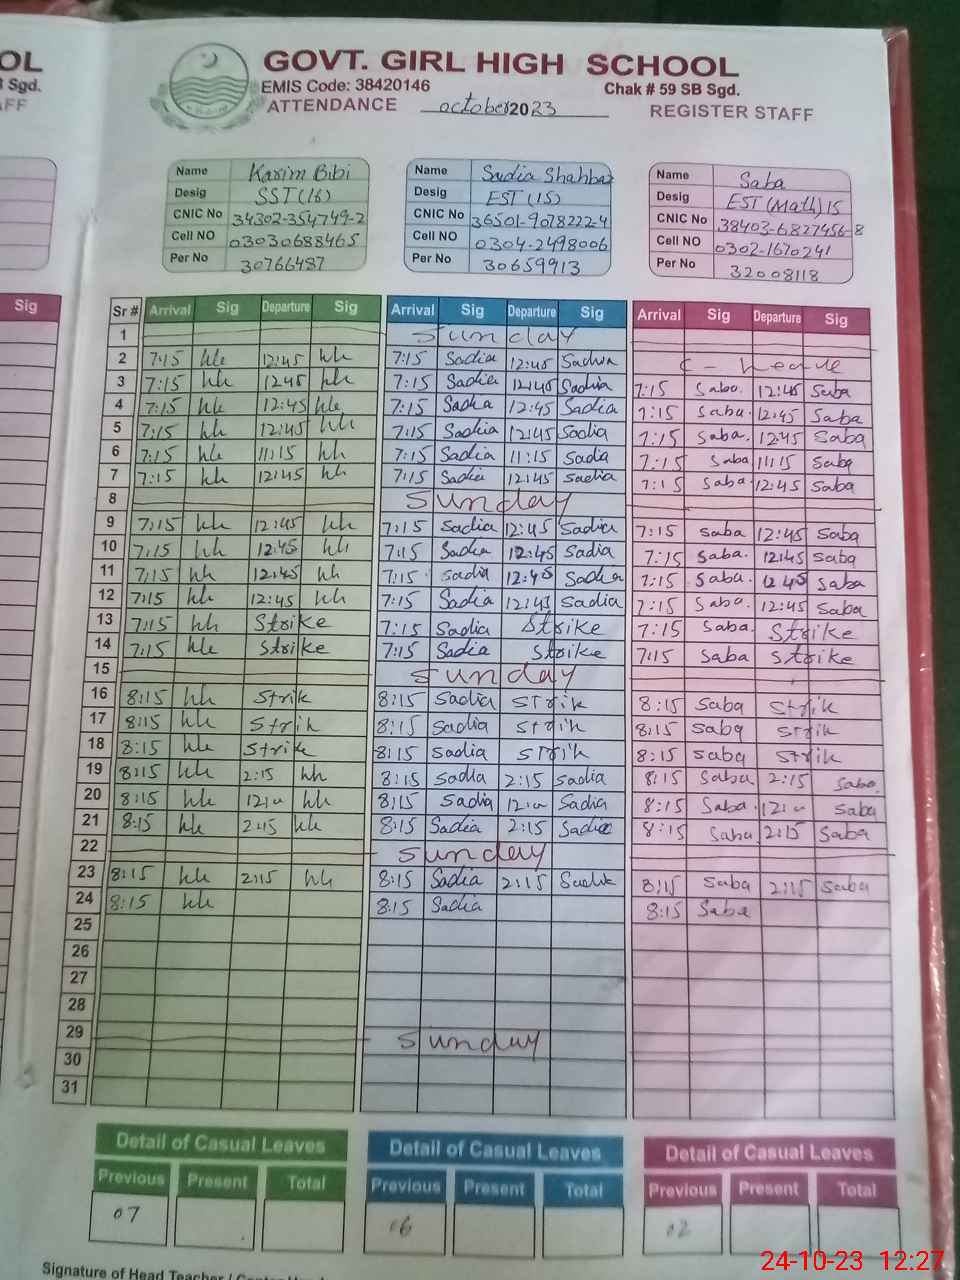 OL
GOVT. GIRL HIGH SCHOOL
Sgd.
EMIS Code: 38420146 Chak # 59 SB Sgd.
AFF
ATTENDANCE october 2023 REGISTER STAFF
Name Karim Bibi Name Sadia Shahbaz Name Saba
Desig SST(16) Desig EST(15) Desig EST(Math)15
CNIC No 34302-354749-2 CNIC No 36501-9078222-4 CNIC No 38403-6827456-8
Cell NO 03030688465 Cell NO 0304-2498006 Cell NO 0302-1670241
Per No 30766487 Per No 30659913 Per No 32008118
Sig Sr # Arrival Sig Departure Sig Arrival Sig Departure Sig Arrival Sig Departure Sig
1 Sunday
2 7:15 12:45 7:15 Sadia 12:45 Sadia C-
3 7:15 1245 7:15 Sadia 12:45 Sadia 7:15 Saba. 12:45 Saba
4 7:15 12:45 7:15 Sadia 12:45 Sadia 7:15 Saba. 12:45 Saba
5 7:15 12:45 7:15 Sadia 12:45 Sadia 7:15 Saba. 12:45 Saba
6 7:15 11:15 7:15 Sadia 11:15 Sadia 7:15 Saba 11:15 Saba
7 7:15 12:45 7:15 Sadia 12:45 Sadia 7:15 Saba 12:45 Saba
8 Sunday
9 7:15 12:45 7:15 Sadia 12:45 Sadia 7:15 Saba 12:45 Saba
10 7:15 12:45 7:15 Sadia 12:45 Sadia 7:15 Saba. 12:45 Saba
11 7:15 12:45 7:15 Sadia 12:45 Sadia 7:15 Saba. 12 45 Saba
12 7:15 12:45 7:15 Sadia 12:45 Sadia 7:15 Saba. 12:45 Saba
13 7:15 Strike 7:15 Sadia Strike 7:15 Saba. Strike
14 7:15 Strike 7:15 Sadia Strike 7:15 Saba Strike
15 Sunday
16 8:15 Strik 8:15 Sadia Strik 8:15 Saba Strik
17 8:15 Strik 8:15 Sadia Strik 8:15 Saba Strik
18 8:15 Strik 8:15 Sadia Strik 8:15 Saba Strik
19 8:15 2:15 8:15 Sadia 2:15 Sadia 8:15 Saba 2:15 Saba.
20 8:15 8:15 Sadia Sadia 8:15 Saba. Saba
21 8:15 2:15 8:15 Sadia 2:15 Sadia 8:15 Saba 2:15 Saba
22 Sunday
23 8:15 2:15 8:15 Sadia 2:15 8:15 Saba 2:15 Saba
24 8:15 8:15 Sadia 8:15 Saba
25
26
27
28
29 Sunday
30
31
Detail of Casual Leaves Detail of Casual Leaves Detail of Casual Leaves
Previous Present Total Previous Present Total Previous Present Total
07 02
Signature of Head Teacher /
24-10-23 12:27